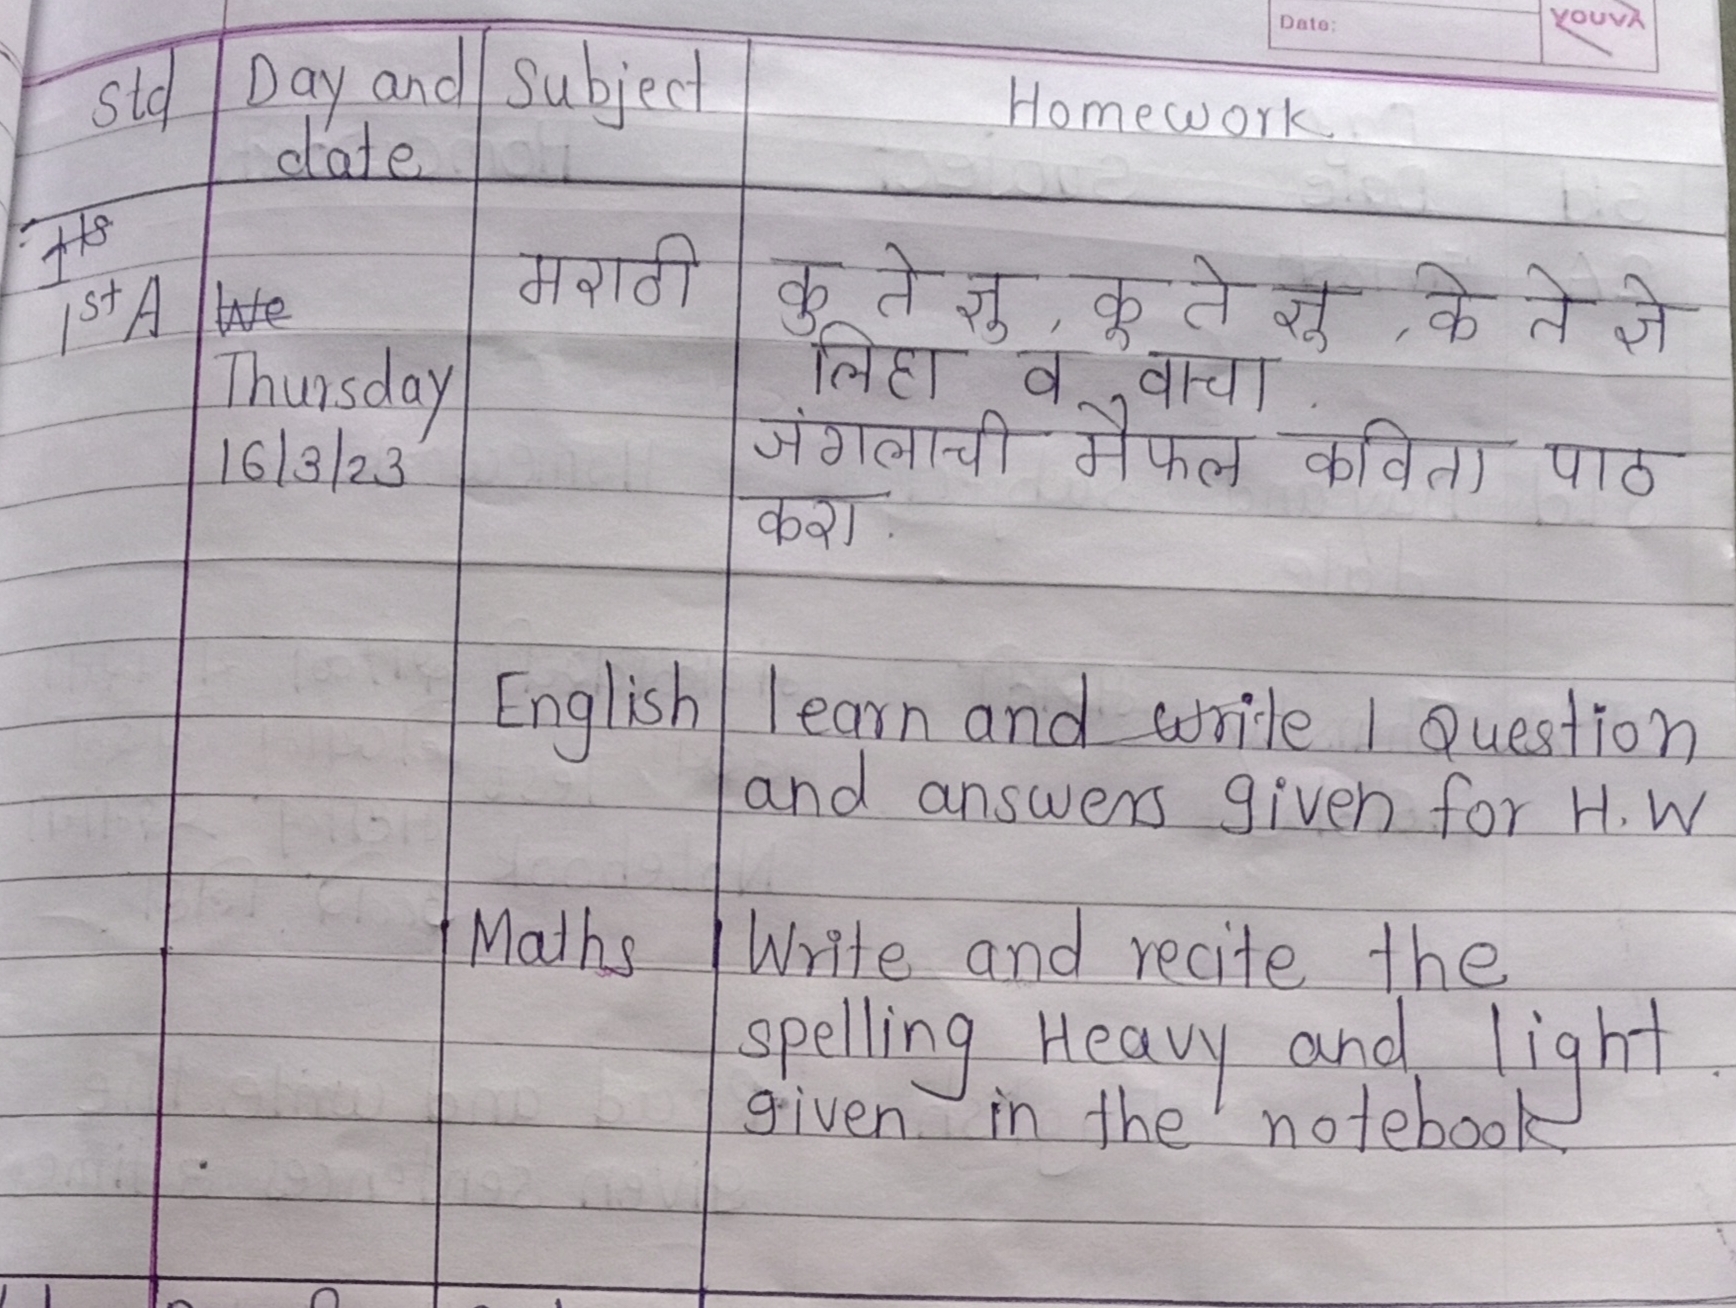 Date:
YOUVA
Std
Day and date
Subject
Homework
1st A
Thursday
16/3/23
मराठी
कु ते ज्ञु, कू ते ज्ञू, के ते ज्ञे
लिहा व वाचा.
जंगलाची मैफल कविता पाठ
करा.
English
learn and write 1 Question
and answers given for H.W
Maths
Write and recite the
spelling Heavy and light
given in the notebook